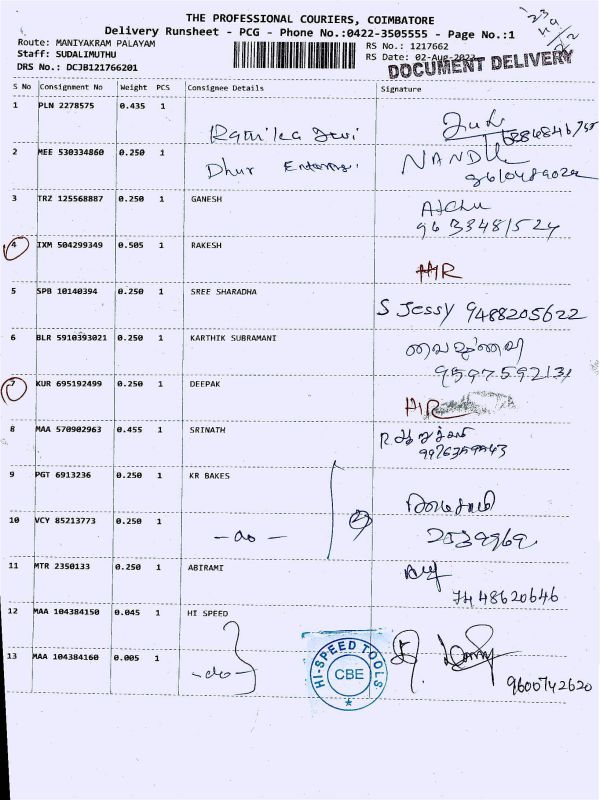 THE PROFESSIONAL COURIERS, COIMBATORE
Delivery Runsheet - PCG - Phone No.:0422-3505555 - Page No.:1
Route: MANIYAKRAM PALAYAM
Staff: SUDALIMUTHU
DRS No.: DCJB121766201
RS No.: 1217662
RS Date: 02-Aug-2022
DOCUMENT DELIVERY
S No Consignment No Weight PCS Consignee Details Signature
1 PLN 2278575 0.435 1
2 MEE 530334860 0.250 1 Dhur NANDU
3 TRZ 125568887 0.250 1 GANESH
9633481524
4 IXM 504299349 0.505 1 RAKESH HR
5 SPB 10140394 0.250 1 SREE SHARADHA
S Jessy 9488205622
6 BLR 5910393021 0.250 1 KARTHIK SUBRAMANI
9597592131
7 KUR 695192499 0.250 1 DEEPAK HR
8 MAA 570902963 0.455 1 SRINATH
9 PGT 6913236 0.250 1 KR BAKES
10 VCY 85213773 0.250 1 -do-
11 MTR 2350133 0.250 1 ABIRAMI
7448620646
12 MAA 104384150 0.045 1 HI SPEED
13 MAA 104384160 0.005 1 -do-
HI-SPEED TOOLS
CBE
9600742620